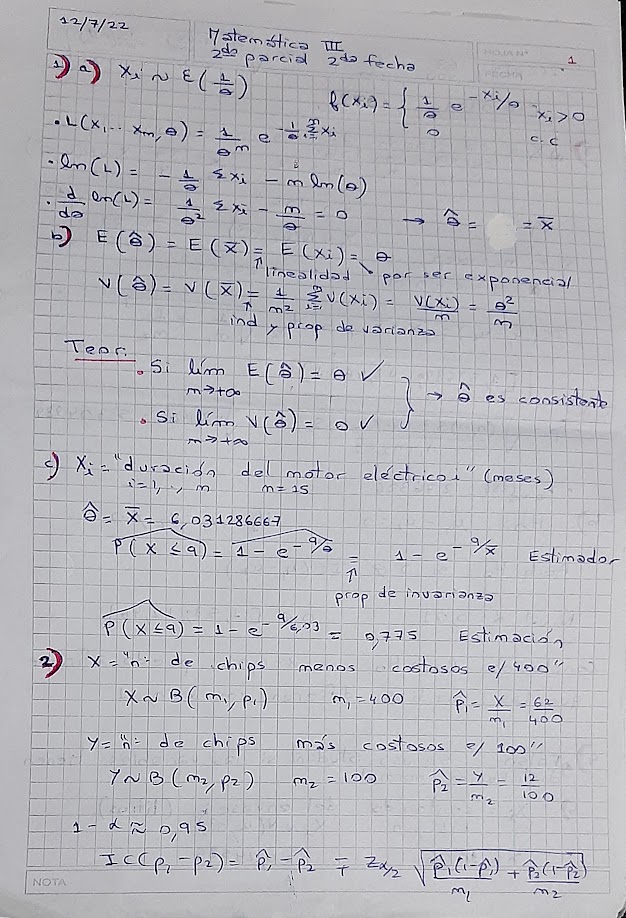 12/7/22
Matemática III
2do parcial 2da fecha
HOJA Nº 1
FECHA
1) a) Xi ~ ε(1/θ) f(xi) = { 1/θ e^(-xi/θ) xi > 0
0 c.c
• L(x1...xm, θ) = 1/θ^m e^(-1/θ Σ_{i=1}^m xi)
• ln(L) = -1/θ Σxi - m ln(θ)
• d/dθ ln(L) = 1/θ² Σxi - m/θ = 0 → θ̂ = = x̄
b) E(θ̂) = E(x̄) = E(xi) = θ
↑ linealidad por ser exponencial
V(θ̂) = V(x̄) = 1/m² Σ_{i=1}^m V(xi) = V(xi)/m = θ²/m
↑ ind y prop de varianza
Teor:
• Si lím_{m→+∞} E(θ̂) = θ ✓
} → θ̂ es consistente
• Si lím_{m→+∞} V(θ̂) = 0 ✓
c) Xi = "duración del motor eléctrico i" (meses)
i=1,.., m m=15
θ̂ = x̄ = 6,031286667
P(X ≤ 9)^ = 1 - e^(-9/θ)^ = 1 - e^(-9/x̄) Estimador
↑
prop de invarianza
P(X ≤ 9)^ = 1 - e^(-9/6,03) = 0,775 Estimación
2) X = "nº de chips menos costosos e/ 400"
X ~ B(m1, p1) m1 = 400 p̂1 = X/m1 = 62/400
Y = "nº de chips más costosos e/ 100"
Y ~ B(m2, p2) m2 = 100 p̂2 = Y/m2 = 12/100
1 - α ≈ 0,95
IC(p1 - p2) = p̂1 - p̂2 ∓ Zα/2 √(p̂1(1-p̂1)/m1 + p̂2(1-p̂2)/m2)
NOTA